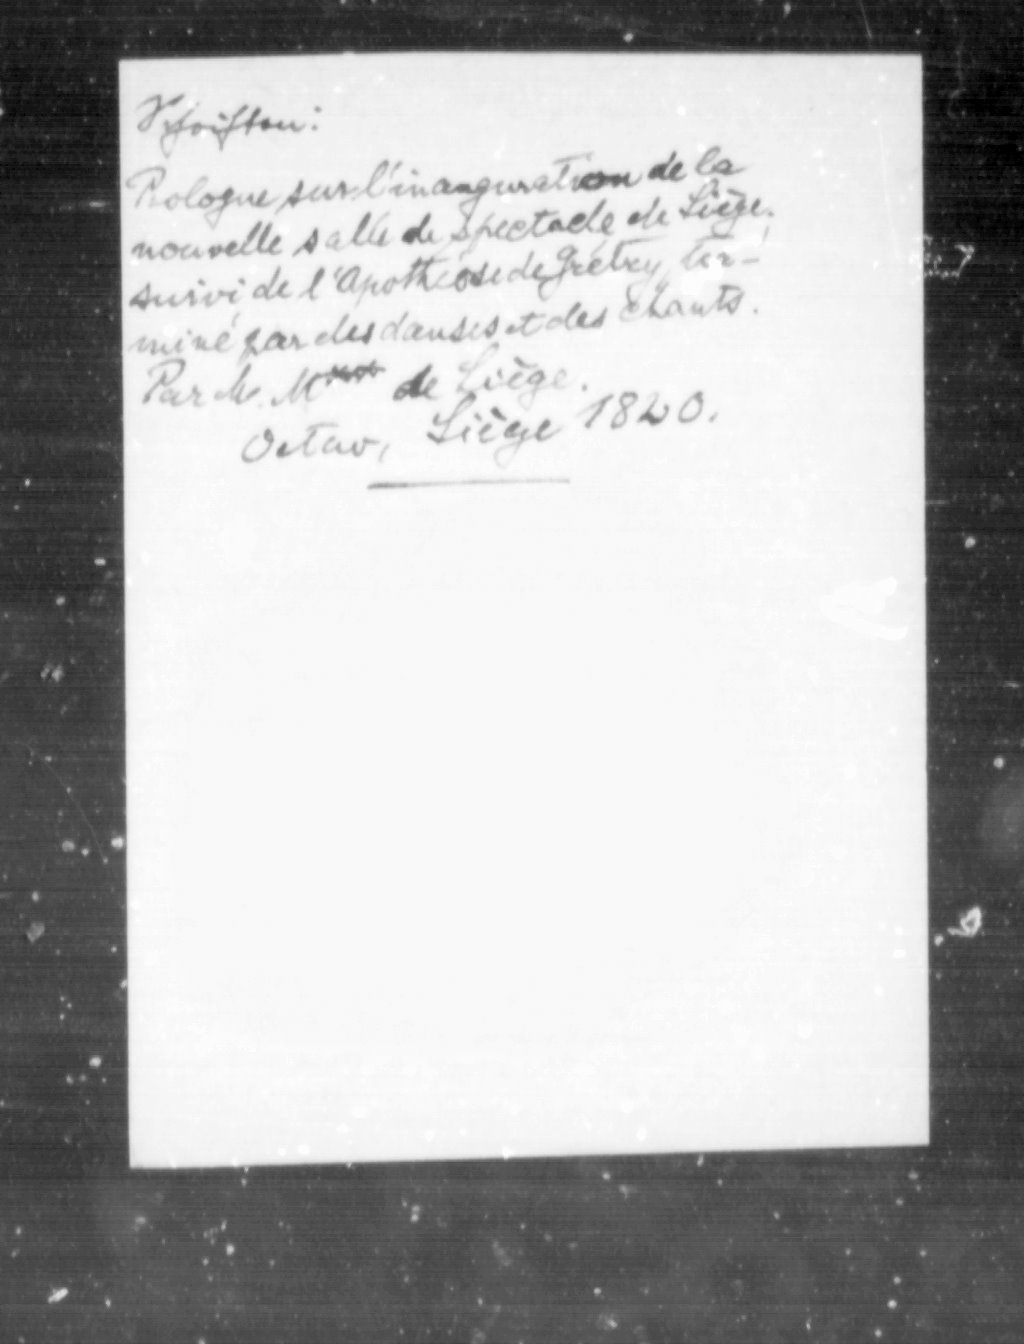 Schriften:
Prologue sur l'inauguration de la
nouvelle salle de spectacle de Liège,
suivi de l'Apothéose de Grétry, ter-
miné par des danses et des chants.
Par M. M**** de Liège.
Octav, Liège 1820.